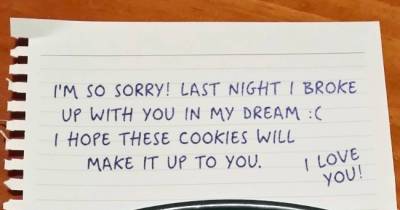 I'M SO SORRY! LAST NIGHT I BROKE
UP WITH YOU IN MY DREAM :(
I HOPE THESE COOKIES WILL
MAKE IT UP TO YOU.
I LOVE
YOU!